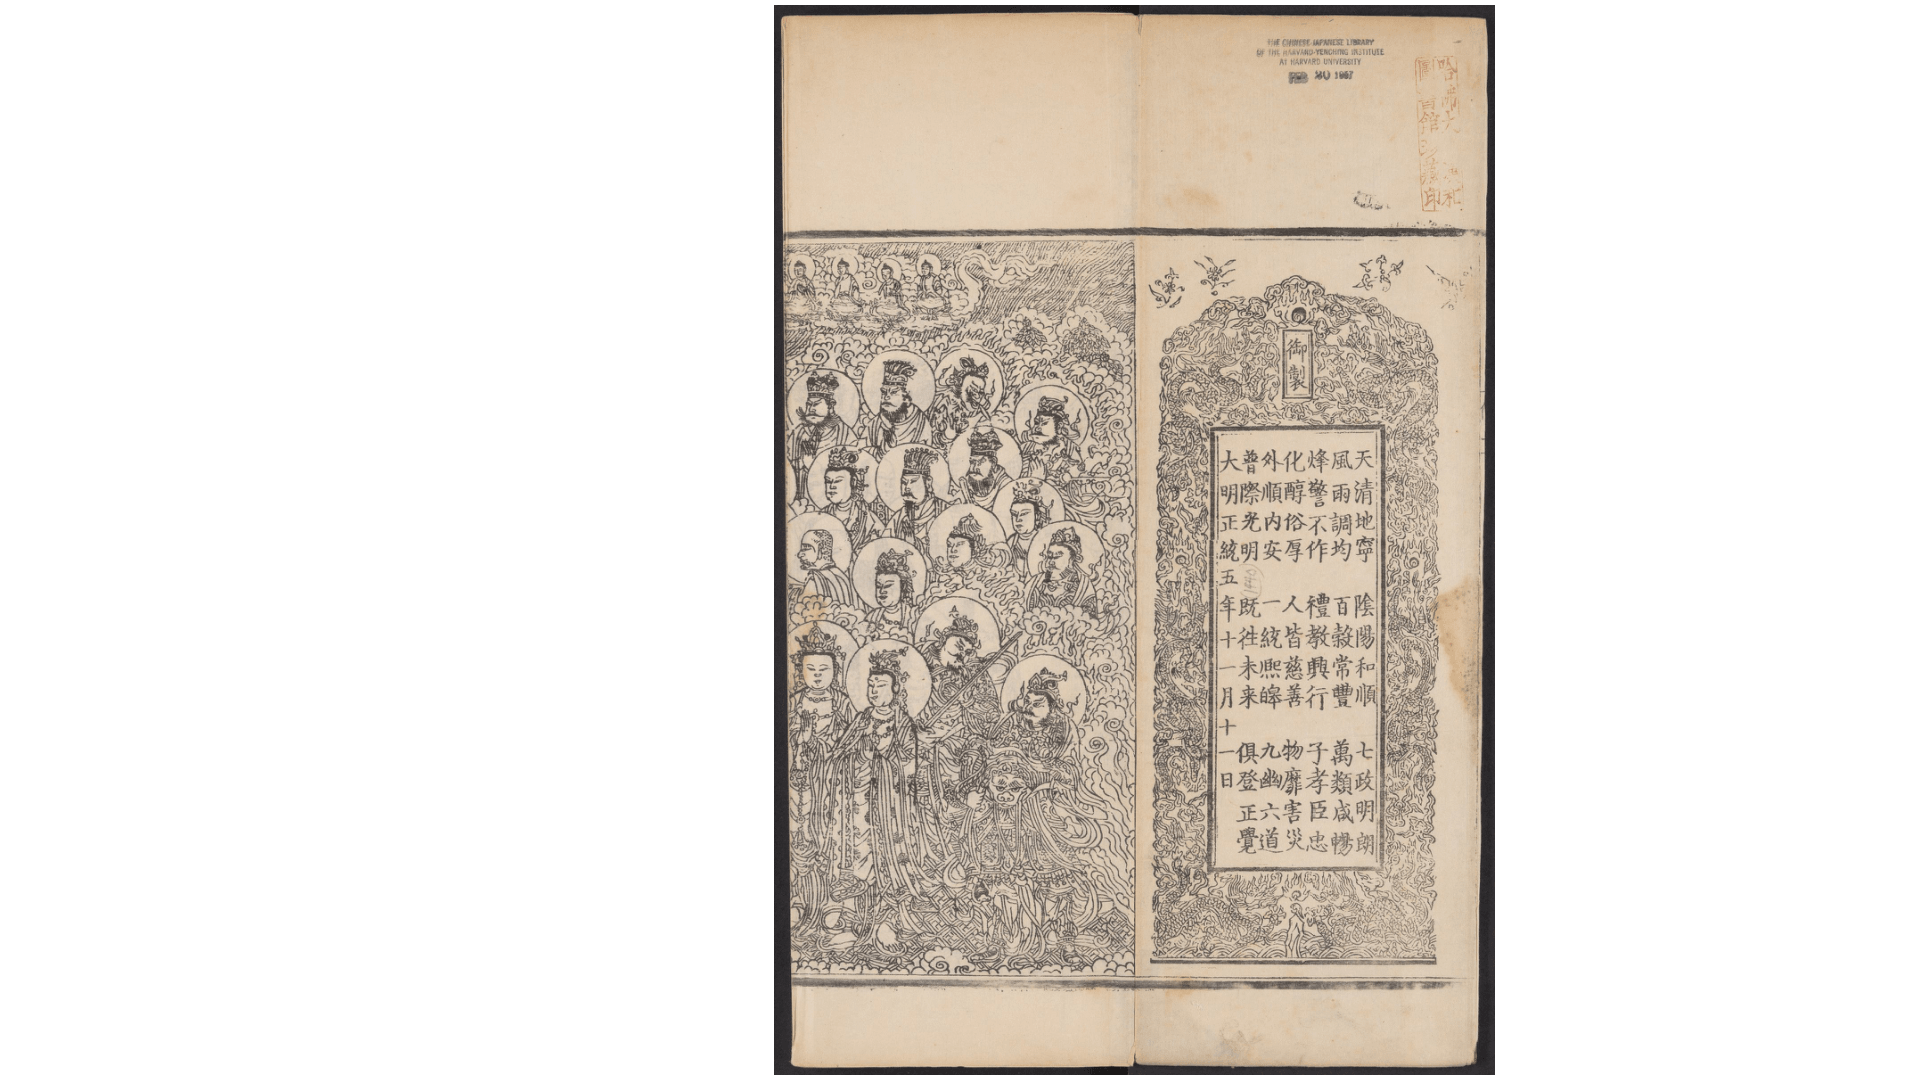 THE CHINESE-JAPANESE LIBRARY
OF THE HARVARD-YENCHING INSTITUTE
AT HARVARD UNIVERSITY
FEB 20
哈佛大學漢和
圖書館珍藏印
御製
天清地寧 陰陽和順 七政明朗
風雨調均 百穀常豐 萬類咸暢
烽警不作 禮教興行 子孝臣忠
化醇俗厚 人皆慈善 物靡害災
外順内安 一統熈皡 九幽六道
普際光明 既徃未来 俱登正覺
大明正統五年十一月十一日